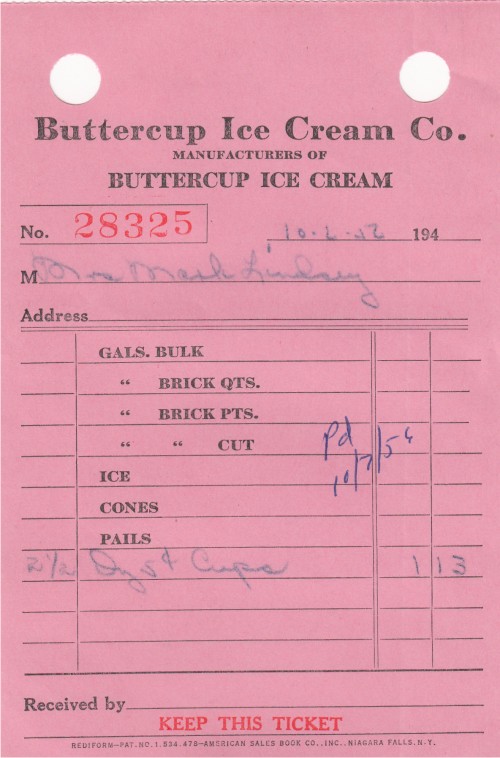 Buttercup Ice Cream Co.
MANUFACTURERS OF
BUTTERCUP ICE CREAM
No. 28325 194
M Mrs Mark Lindsey
Address
GALS. BULK
“ BRICK QTS.
“ BRICK PTS.
“ “ CUT
Pd
ICE
CONES
PAILS
2 1/2 Dz 5¢ Cups 1 13
Received by
KEEP THIS TICKET
REDIFORM—PAT. NO. 1,534,475—AMERICAN SALES BOOK CO., INC., NIAGARA FALLS, N.Y.